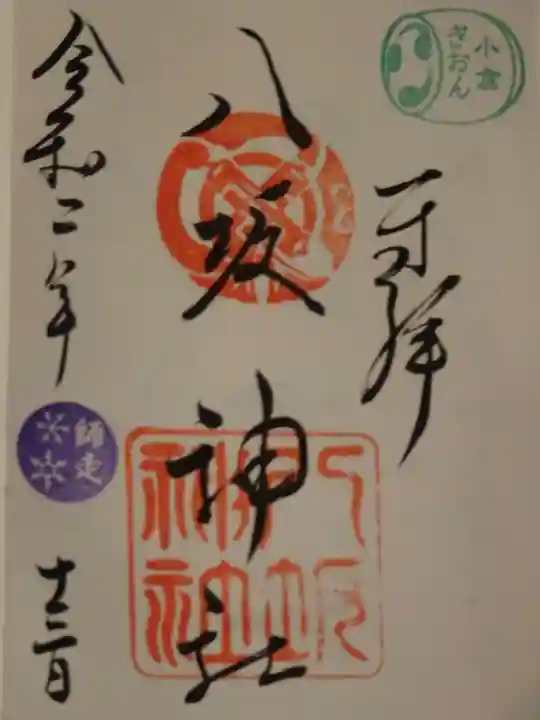 小倉
ぎおん
奉拝
八坂神社
八坂
神社
令和二年
師走
十三日